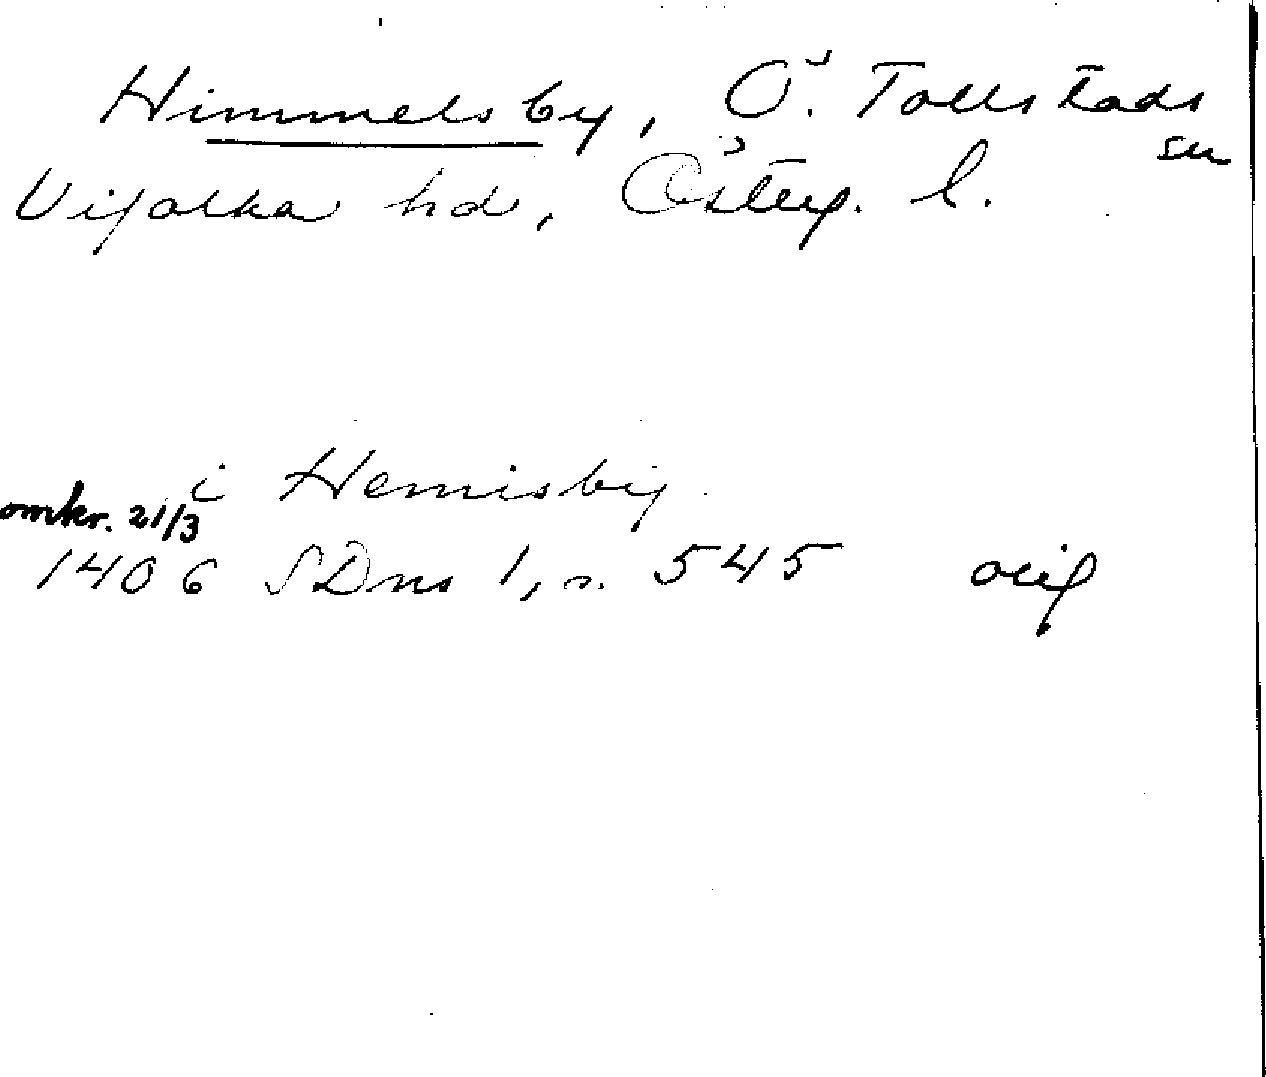 Himmelsby, Ö. Tollstads
sn
Vifolka hd, Österg. l.
i Hemisby
omkr. 21/3
1406 SDns 1, n. 545 orig